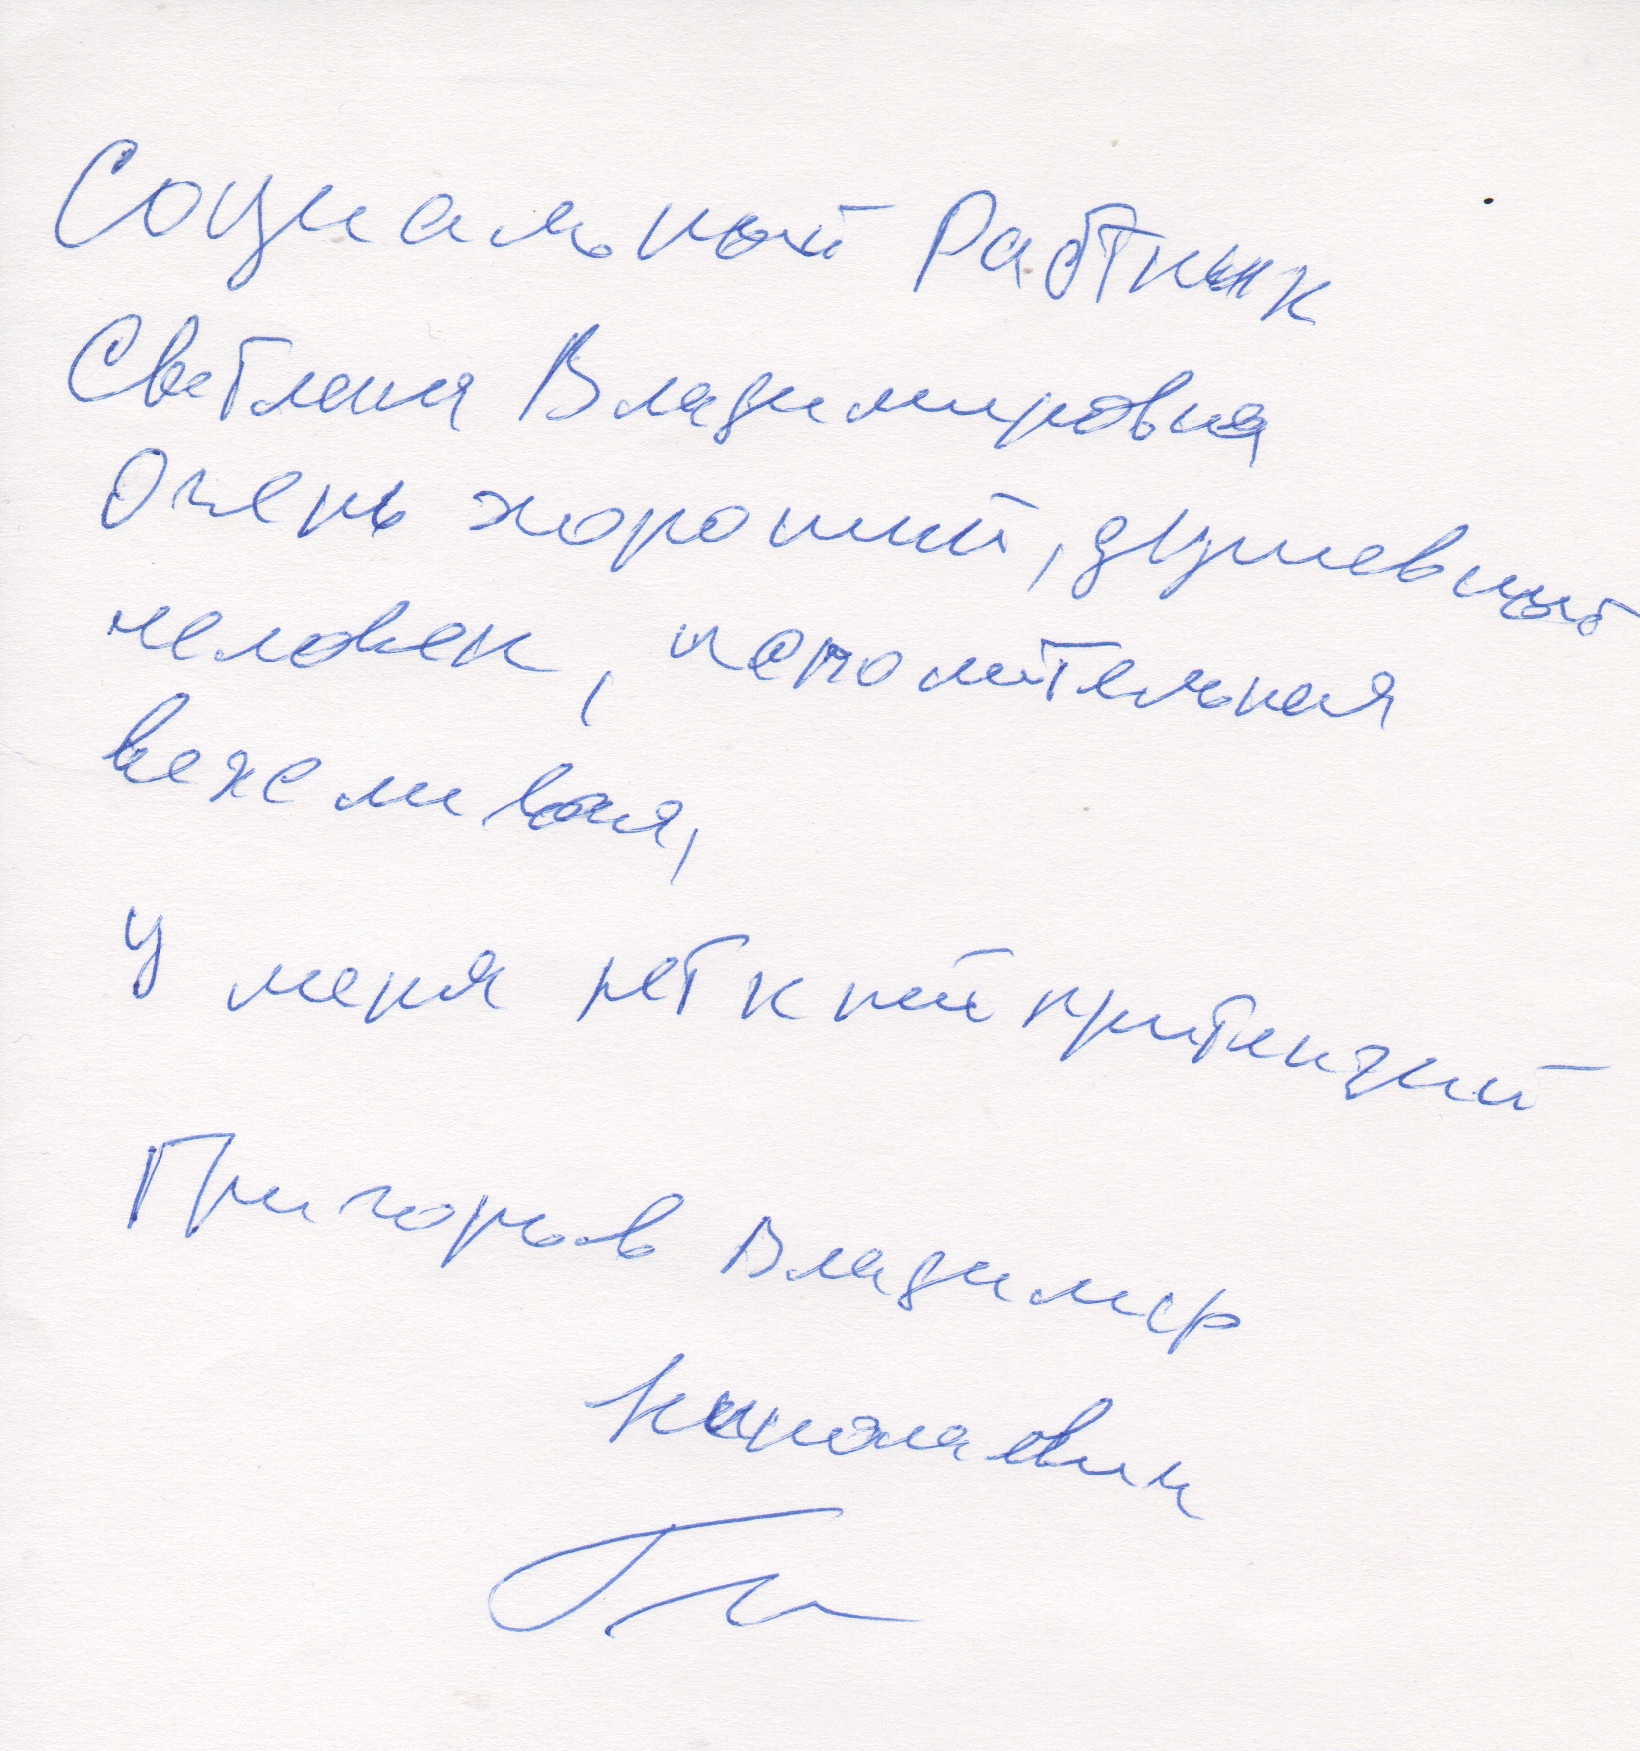 Социальный Работник
Светлана Владимировна
Очень хороший, душевный
человек, исполнительная
вежливая,
У меня нет к ней притензий
Григорьев Владимир
Николаевич